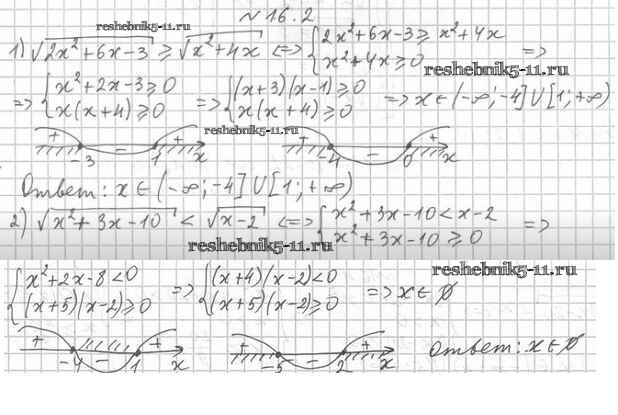 № 16.2
reshebnik5-11.ru
1) √(2x²+6x-3) ≥ √(x²+4x) <=> { 2x²+6x-3 ≥ x²+4x
x²+4x ≥ 0 =>
reshebnik5-11.ru
=> { x²+2x-3 ≥ 0
x(x+4) ≥ 0 => { (x+3)(x-1) ≥ 0
x(x+4) ≥ 0 => x∈(-∞;-4]∪[1;+∞)
reshebnik5-11.ru
+ - + + - +
-3 1 x -4 0 x
Ответ: x∈(-∞;-4]∪[1;+∞)
2) √(x²+3x-10) < √(x-2) <=> { x²+3x-10 < x-2
x²+3x-10 ≥ 0 =>
reshebnik5-11.ru
reshebnik5-11.ru
{ x²+2x-8 < 0
(x+5)(x-2) ≥ 0 => { (x+4)(x-2) < 0
(x+5)(x-2) ≥ 0 => x∈∅
+ - + + - +
-4 1 x -5 2 x
Ответ: x∈∅